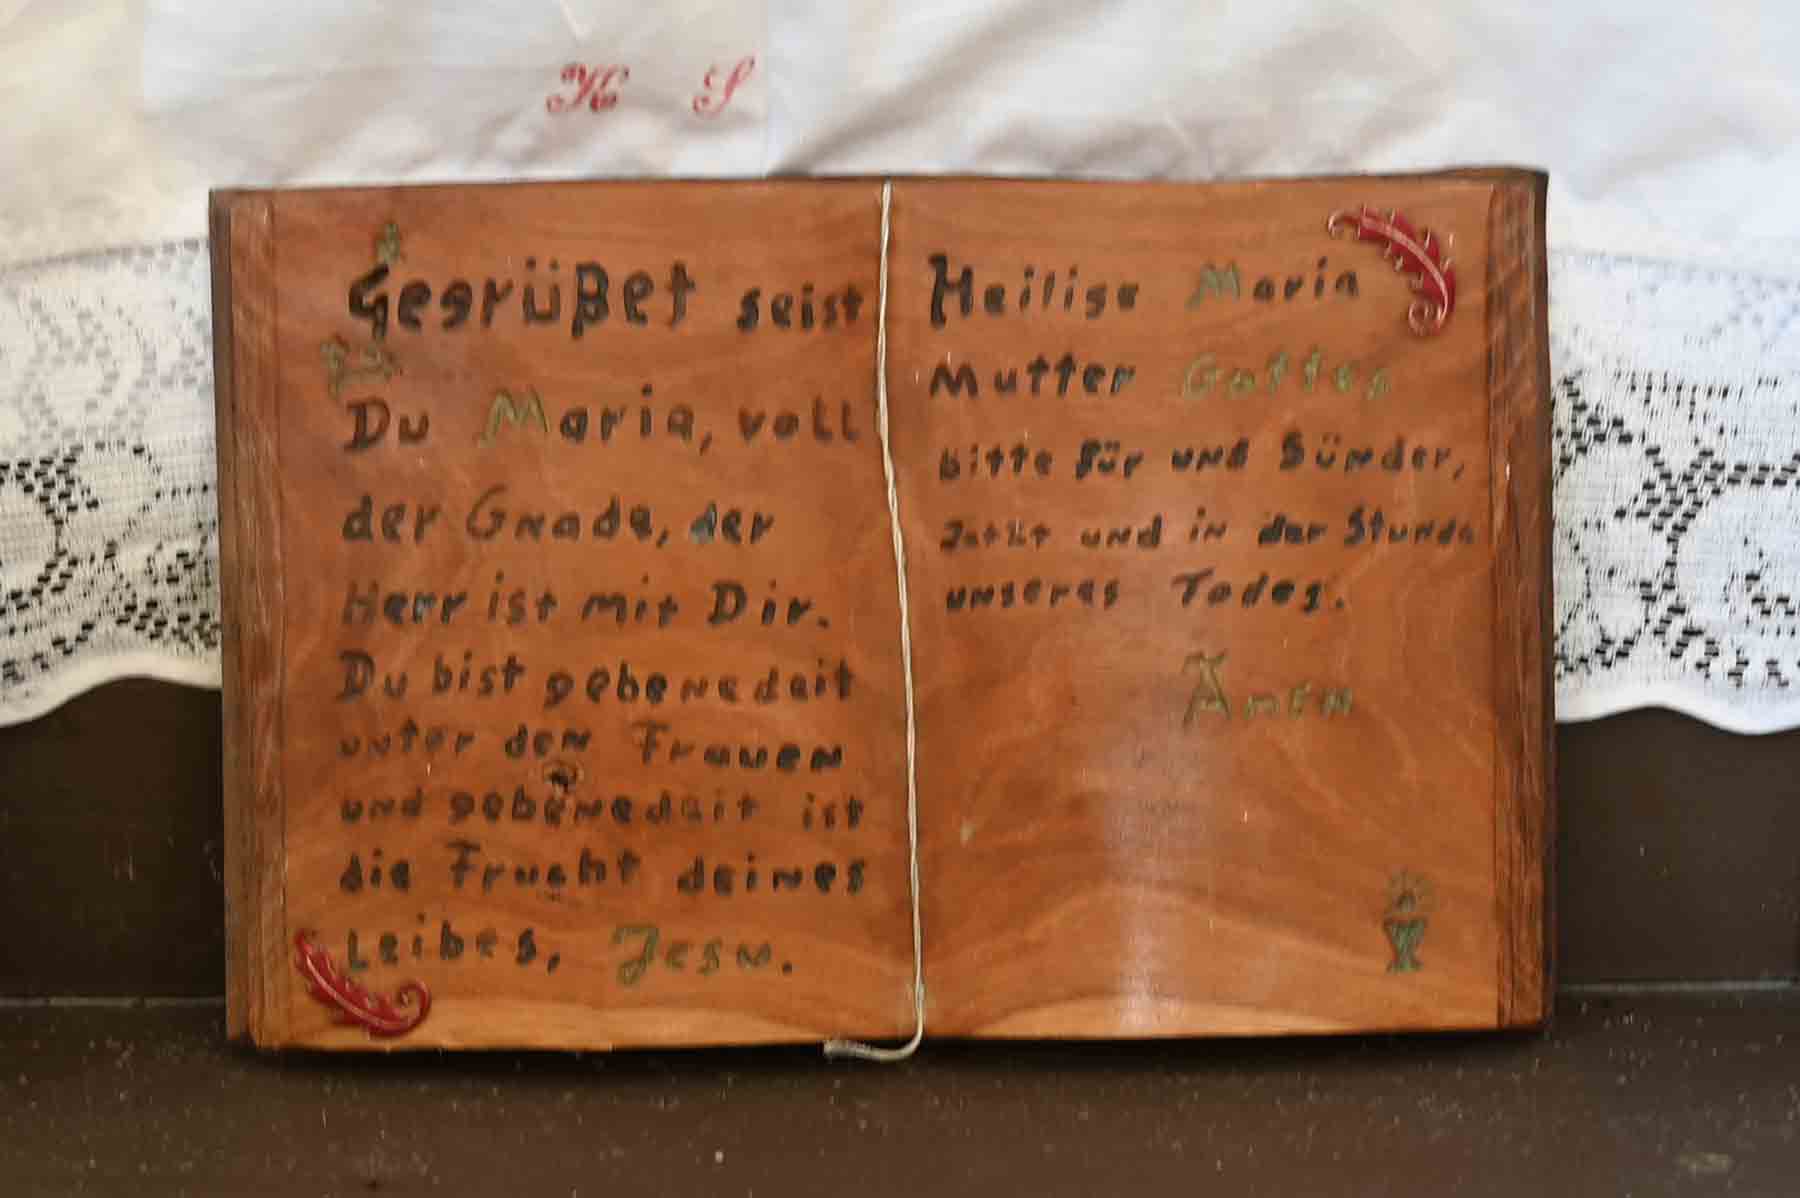 H S
Gegrüßet seist
Du Maria, voll
der Gnade, der
Herr ist mit Dir.
Du bist gebenedeit
unter den Frauen
und gebenedeit ist
die Frucht deines
Leibes, Jesu.
Heilige Maria
Mutter Gottes
bitte für uns Sünder,
Jetzt und in der Stunde
unseres Todes.
Amen